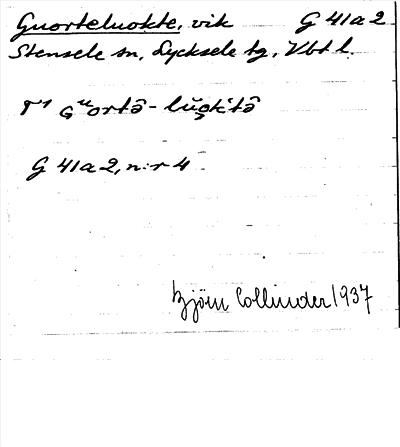 Guorteluokte, vik G 41a2
Stensele sn, Lycksele tg, Vbt l.
G 41a2, n:r 4
Björn Collinder 1937